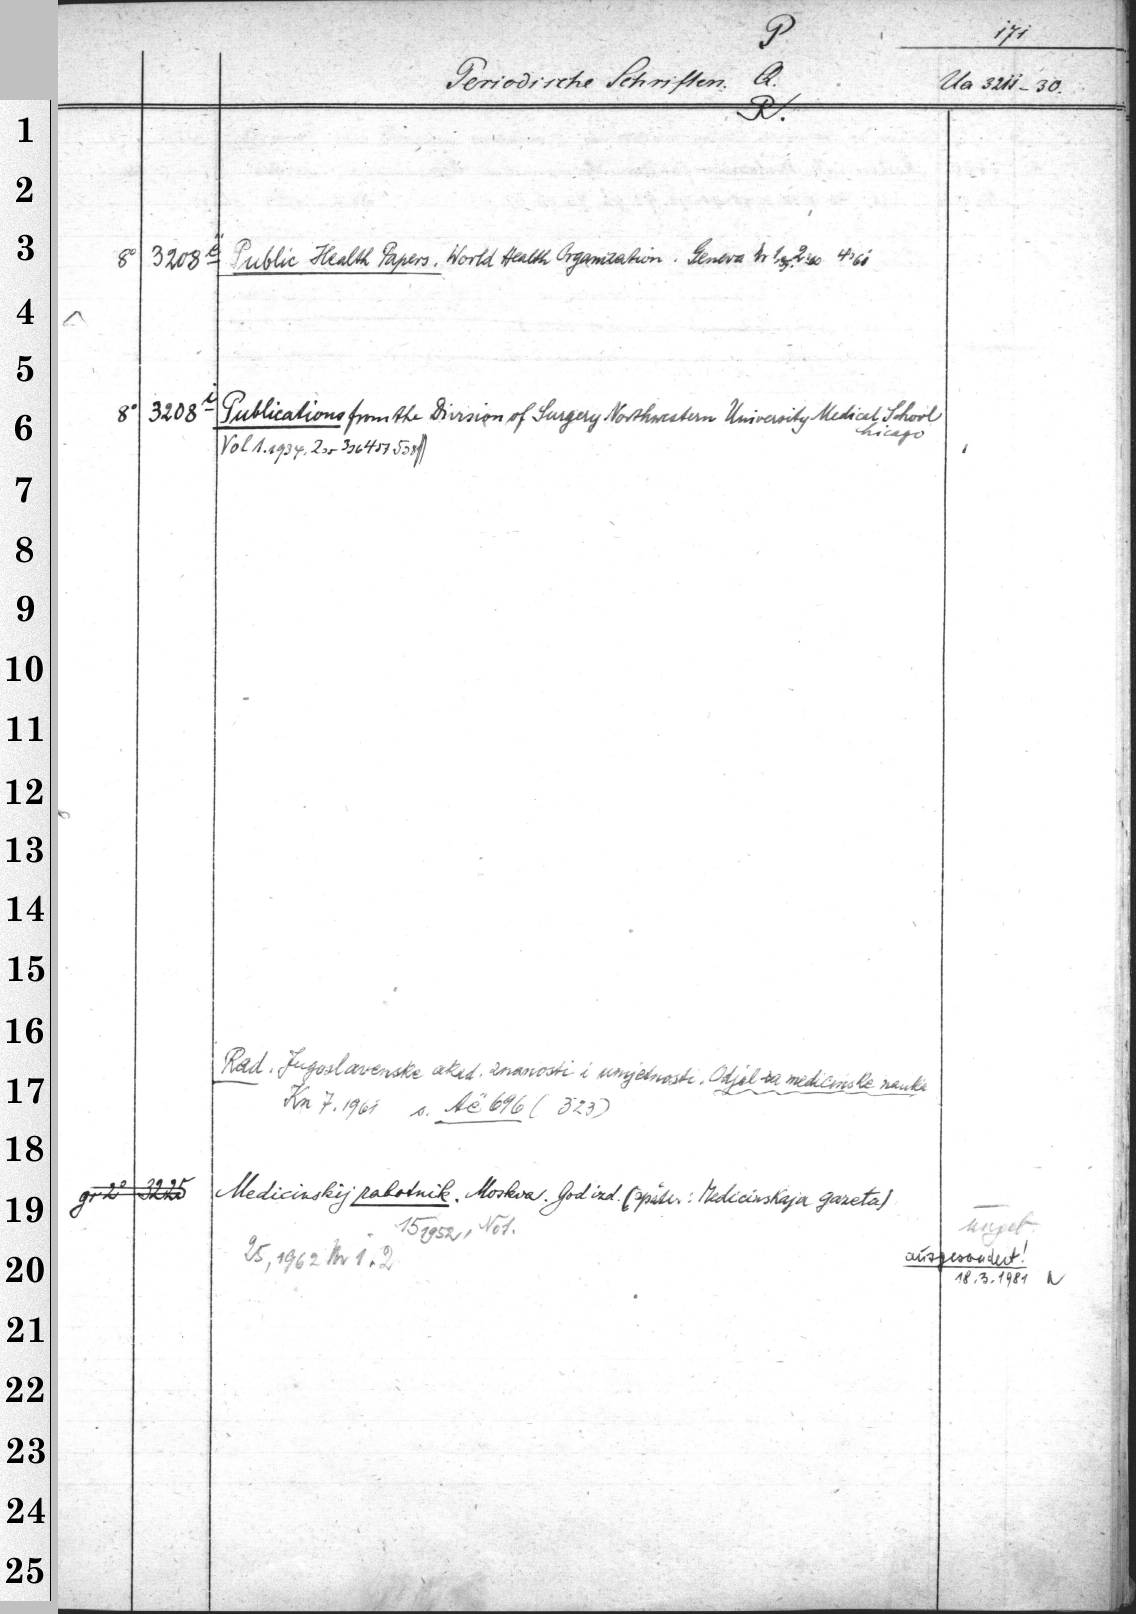 P
171
Periodische Schriften. Q. Ua 3211-30.
R.
1
2
3
8° 3208 Public Health Papers. World Health Organization. Geneva Nr 1 59. 2 60 4 61
4
5
8° 3208 i Publications from the Division of Surgery Northwestern University Medical School
6
Chicago
Vol 1. 1934. 2 35 3 36 4 37 5 38
7
8
9
10
11
12
13
14
15
16
Rad. Jugoslavenske akad. znanosti i umjetnosti. Odjel za medicinske nauke
17
Kn 7. 1961 s. Ač 696 ( 323)
18
gr 2° 3225 Medicinskij rabotnik. Moskva. God izd. (später: Medicinskaja gazeta)
19
15 1952, No 1.
ungeb.
25, 1962 Nr 1. 2
ausgesondert!
20
18.3.1981
21
22
23
24
25